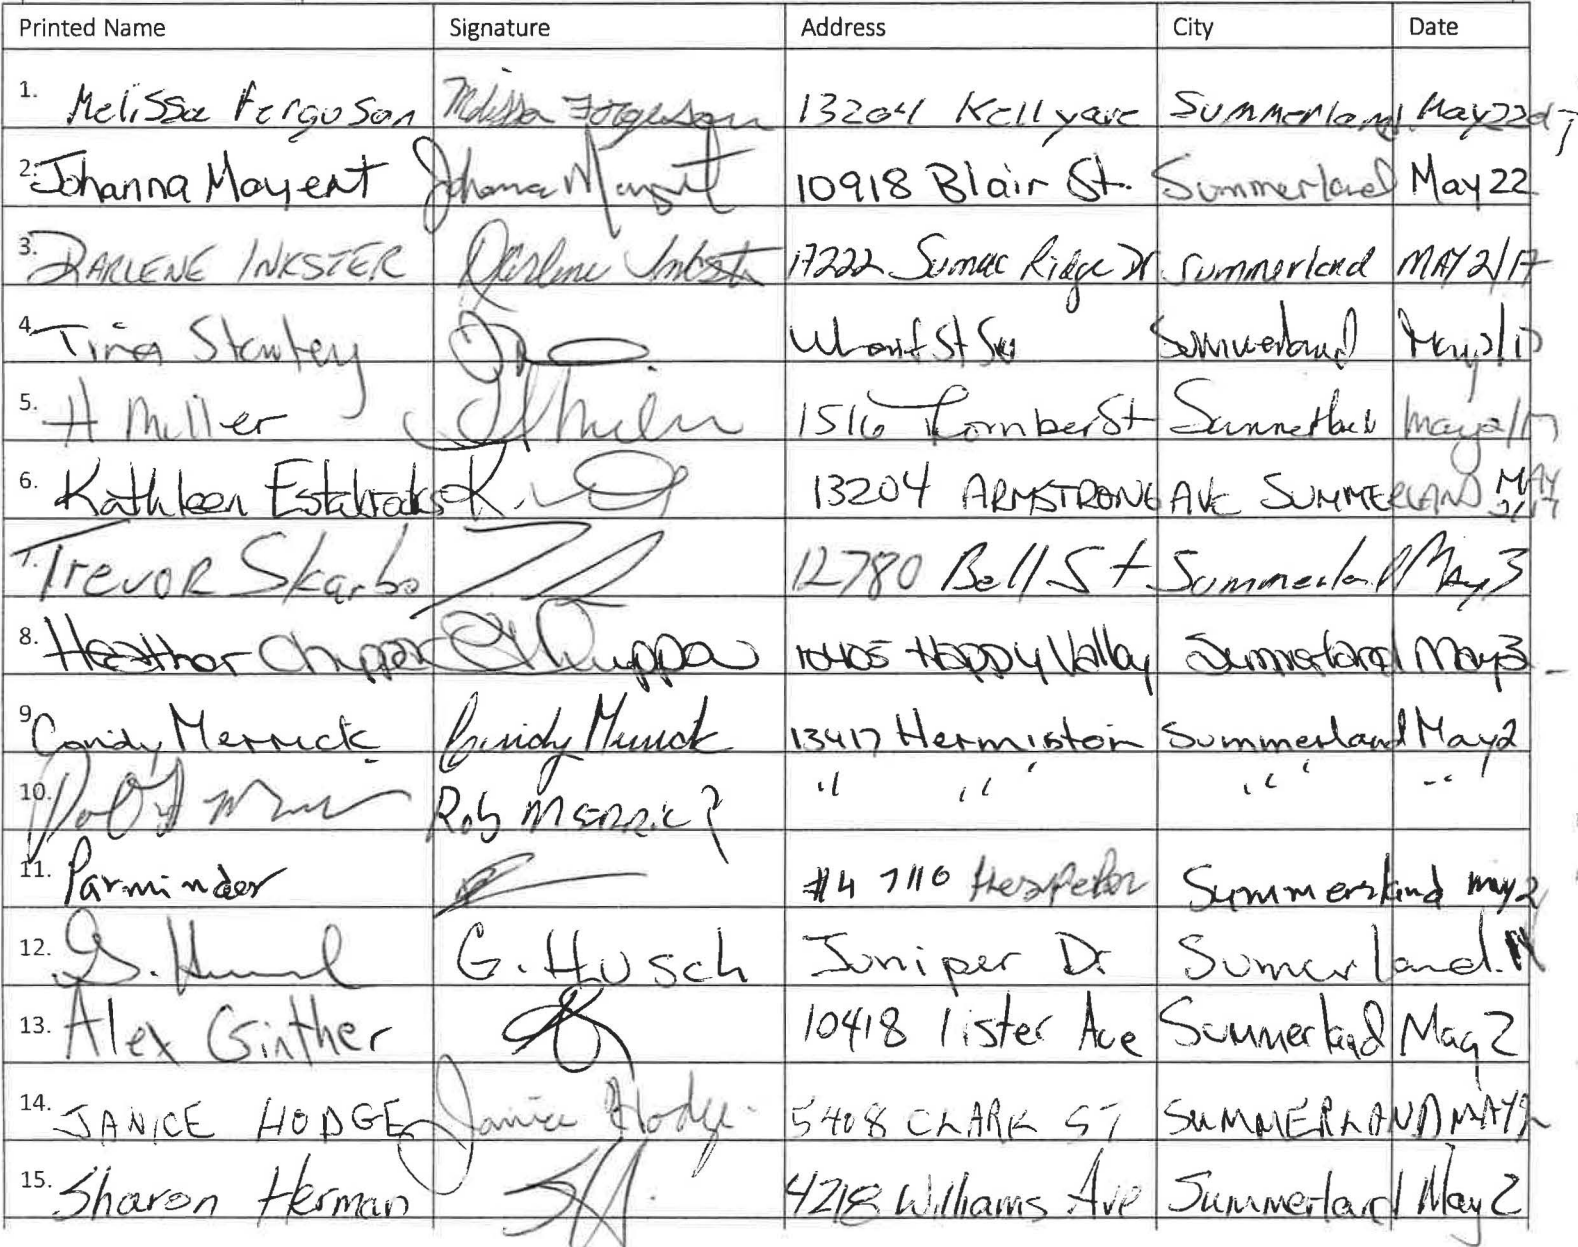 Printed Name Signature Address City Date
1. Melissa Ferguson Melissa Ferguson 13204 Kelly ave Summerland May 22
2. Johanna Mayert Johanna Mayert 10918 Blair St. Summerland May 22
3. DARLENE INKSTER Darlene Inkster 17222 Sumac Ridge Dr Summerland MAY 2/17
4. Tina Stanley Wharf St Summerland May 2/17
5. H Miller H Miller 1516 St May 2/17
6. Kathleen Estabrooks K. 13204 ARMSTRONG AVE SUMMERLAND MAY 2/17
7. Trevor Skarbo 12780 Bell St Summerland May 3
8. Heather Chippa 10405 Happy Valley Summerland May 3
9. Candy Merrick Candy Merrick 13417 Hermiston Summerland May 2
10. Rob Merrick " " " "
11. Parminder #4 7110 Summerland may 2
12. G. Husch Juniper Dr Sumerland.
13. Alex Ginther 10418 lister Ave Summerland May 2
14. JANICE HODGE Janice Hodge 5408 CLARK ST SUMMERLAND MAY 2
15. Sharon Herman SH. 4218 Williams Ave Summerland May 2